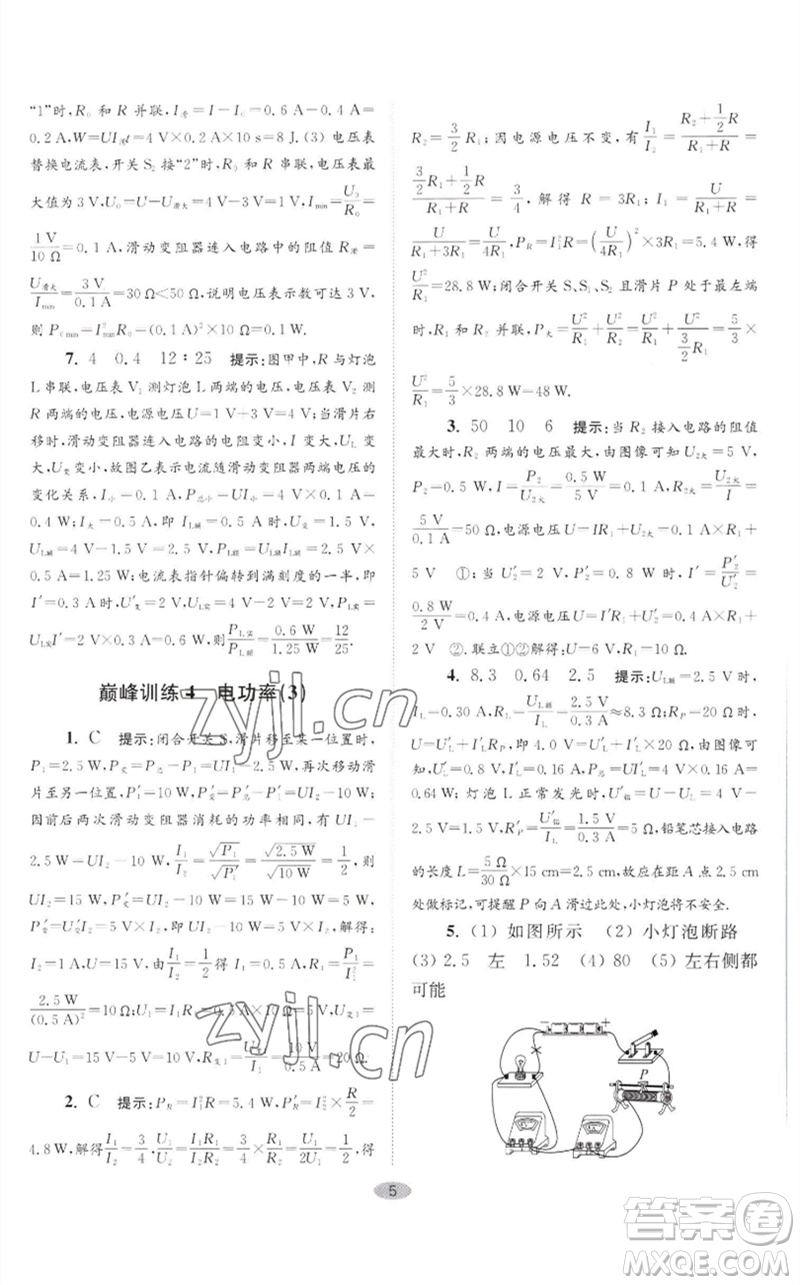 “1”时, R₀ 和 R 并联, I滑=I-I₀=0.6 A-0.4 A=
0.2 A, W=UI滑t=4 V×0.2 A×10 s=8 J. (3) 电压表
替换电流表, 开关 S₂ 接“2”时, R₀ 和 R 串联, 电压表最
大值为 3 V, U₀=U-U滑大=4 V-3 V=1 V, Imin=U₀/R₀=
1 V/10 Ω=0.1 A, 滑动变阻器连入电路中的阻值 R滑=
U滑大/Imin=3 V/0.1 A=30 Ω<50 Ω, 说明电压表示数可达 3 V,
则 P₀min=I²minR₀=(0.1 A)²×10 Ω=0.1 W.
7. 4 0.4 12∶25 提示: 图甲中, R 与灯泡
L 串联, 电压表 V₁ 测灯泡 L 两端的电压, V₂ 测
R 两端的电压, 电源电压 U=1 V+3 V=4 V; 当滑片右
移时, 滑动变阻器连入电路的电阻变小, I 变大, UL 变
大, U变 变小, 故图乙表示电流随滑动变阻器两端电压的
变化关系, I小=0.1 A, P总小=UI小=4 V×0.1 A=
0.4 W; I大=0.5 A, 即 I额=0.5 A, UL额=1.5 V,
UL额=4 V-1.5 V=2.5 V, PL额=UL额IL额=2.5 V×
0.5 A=1.25 W; 电流表指针偏转到满刻度的一半, 即
I′=0.3 A, U′变=2 V, UL实=4 V-2 V=2 V, PL实=
UL实I′=2 V×0.3 A=0.6 W, PL实/PL额=0.6 W/1.25 W=12/25.
巅峰训练 4 电功率(3)
1. C 提示: 闭合开关 S, 滑片移至某一位置时,
P₁=2.5 W, P变=P总-P₁=UI₁-2.5 W, 再次移动滑
片至另一位置, P′₁=10 W, P′变=P′总-P′₁=UI₂-10 W;
因前后两次滑动变阻器消耗的功率相同, 有 UI₁-
2.5 W=UI₂-10 W, I₁/I₂=√P₁/√P′₁=√2.5 W/√10 W=1/2, 则
UI₁-2.5 W=2UI₁-10 W, 解得 UI₁=7.5 W, P变=
P′变=7.5 W-2.5 W=5 W, 即 U变I₁=5 W, U变=10 V,
U′变I₂=U′变×2I₁=5 V×I₂=5 W, I₂=1 A, 解得:
I₁=0.5 A, U=15 V, 由 I₁/I₂=1/2 得, R₁=P₁/I₁²=
2.5 W/(0.5 A)²=10 Ω; U₁=I₁R₁=0.5 A×10 Ω=5 V, U变1=
U-U₁=15 V-5 V=10 V, R变1=U变1/I₁=10 V/0.5 A=20 Ω.
2. C 提示: PR=I₁²R=5.4 W, P′R=I₂²×R/2=
4.8 W, 解得 I₁/I₂=3/4, U₁/U₂=I₁R₁/I₂R₂=3/4×R₁/R₂=1/2, 得
R₂=3/2 R₁; 因电源电压不变, 有 I₁/I₂=(R₂+1/2 R)/(R₁+R)=
(3/2 R₁+1/2 R)/(R₁+R)=3/4, 解得 R=3R₁; I₁=U/(R₁+R)=
U/(R₁+3R₁)=U/4R₁, PR=I₁²R=(U/4R₁)²×3R₁=5.4 W, 得
U²/R₁=28.8 W; 闭合开关 S、S₁、S₂ 且滑片 P 处于最左端
时, R₁ 和 R₂ 并联, P大=U²/R₁+U²/R₂=U²/R₁+U²/(3/2 R₁)=5/3×
U²/R₁=5/3×28.8 W=48 W.
3. 50 10 6 提示: 当 R₂ 接入电路的阻值
最大时, R₂ 两端的电压最大, 由图像可知 U₂大=5 V,
P₂=0.5 W, I=P₂/U₂大=0.5 W/5 V=0.1 A, R₂大=U₂大/I=
5 V/0.1 A=50 Ω, 电源电压 U=IR₁+U₂大=0.1 A×R₁+
5 V ①; 当 U′₂=2 V, P′₂=0.8 W 时, I′=P′₂/U′₂=
0.8 W/2 V=0.4 A, 电源电压 U=I′R₁+U′₂=0.4 A×R₁+
2 V ②. 联立①②解得: U=6 V, R₁=10 Ω.
4. 8.3 0.64 2.5 提示: UL额=2.5 V,
IL=0.30 A, RL=UL额/IL=2.5 V/0.30 A≈8.3 Ω; RP=20 Ω 时,
U=U′L+I′LRP=0.8 V+0.16 A×20 Ω=4 V, 由图像可
知 U′L=0.8 V, I′L=0.16 A, P总=UI′L=4 V×0.16 A=
0.64 W; 灯泡 L 正常发光时, U′铅=U-UL额=4 V-
2.5 V=1.5 V, R′P=U′铅/IL=1.5 V/0.3 A=5 Ω, 铅笔芯接入电路
的长度 L=5 Ω/30 Ω×15 cm=2.5 cm, 故应在距 A 点 2.5 cm
处做标记, 可提醒 P 向 A 滑过此点, 小灯泡将不安全.
5. (1) 如图所示 (2) 小灯泡断路
(3) 2.5 左 1.52 (4) 80 (5) 左右侧都
可能
P
5
zyjl.cn
zyjl.cn
答案卷
MXQE.COM